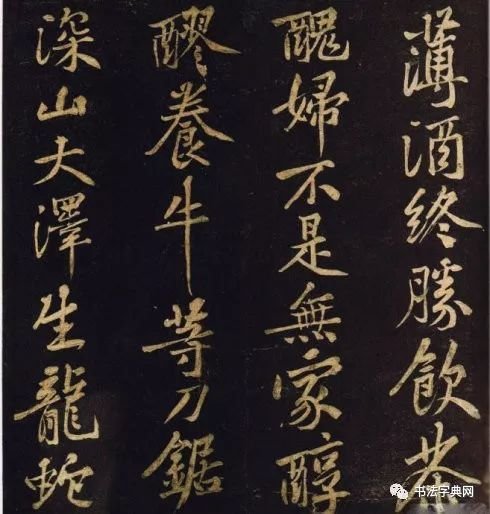 薄酒終勝飲茶
醜婦不是無家醇
醪養牛等刀鋸
深山大澤生龍蛇
书法字典网